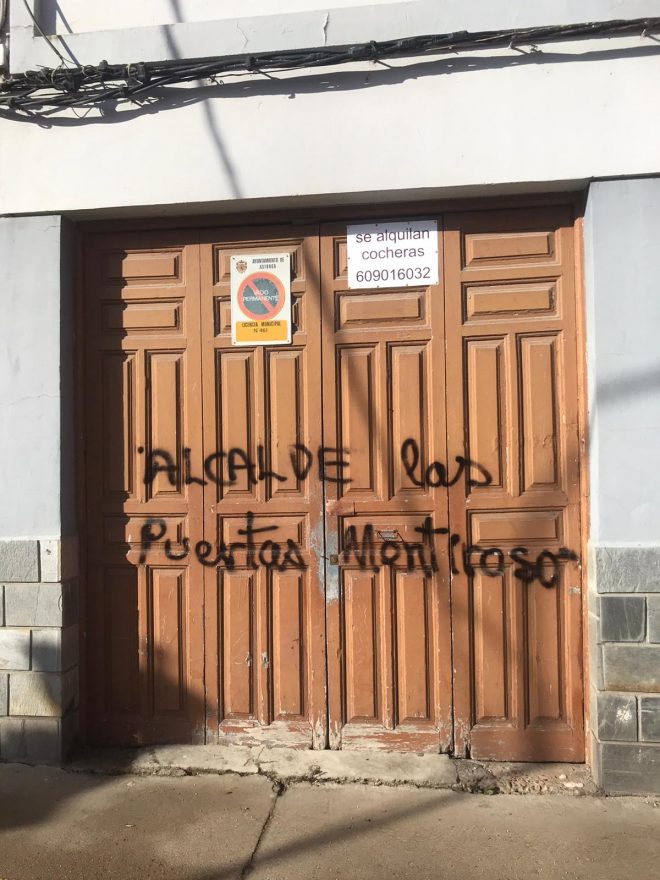 AYUNTAMIENTO DE
ASTORGA
VADO
PERMANENTE
LICENCIA MUNICIPAL
N 461
se alquilan
cocheras
609016032
ALCALDE las
Puertas Mentiroso